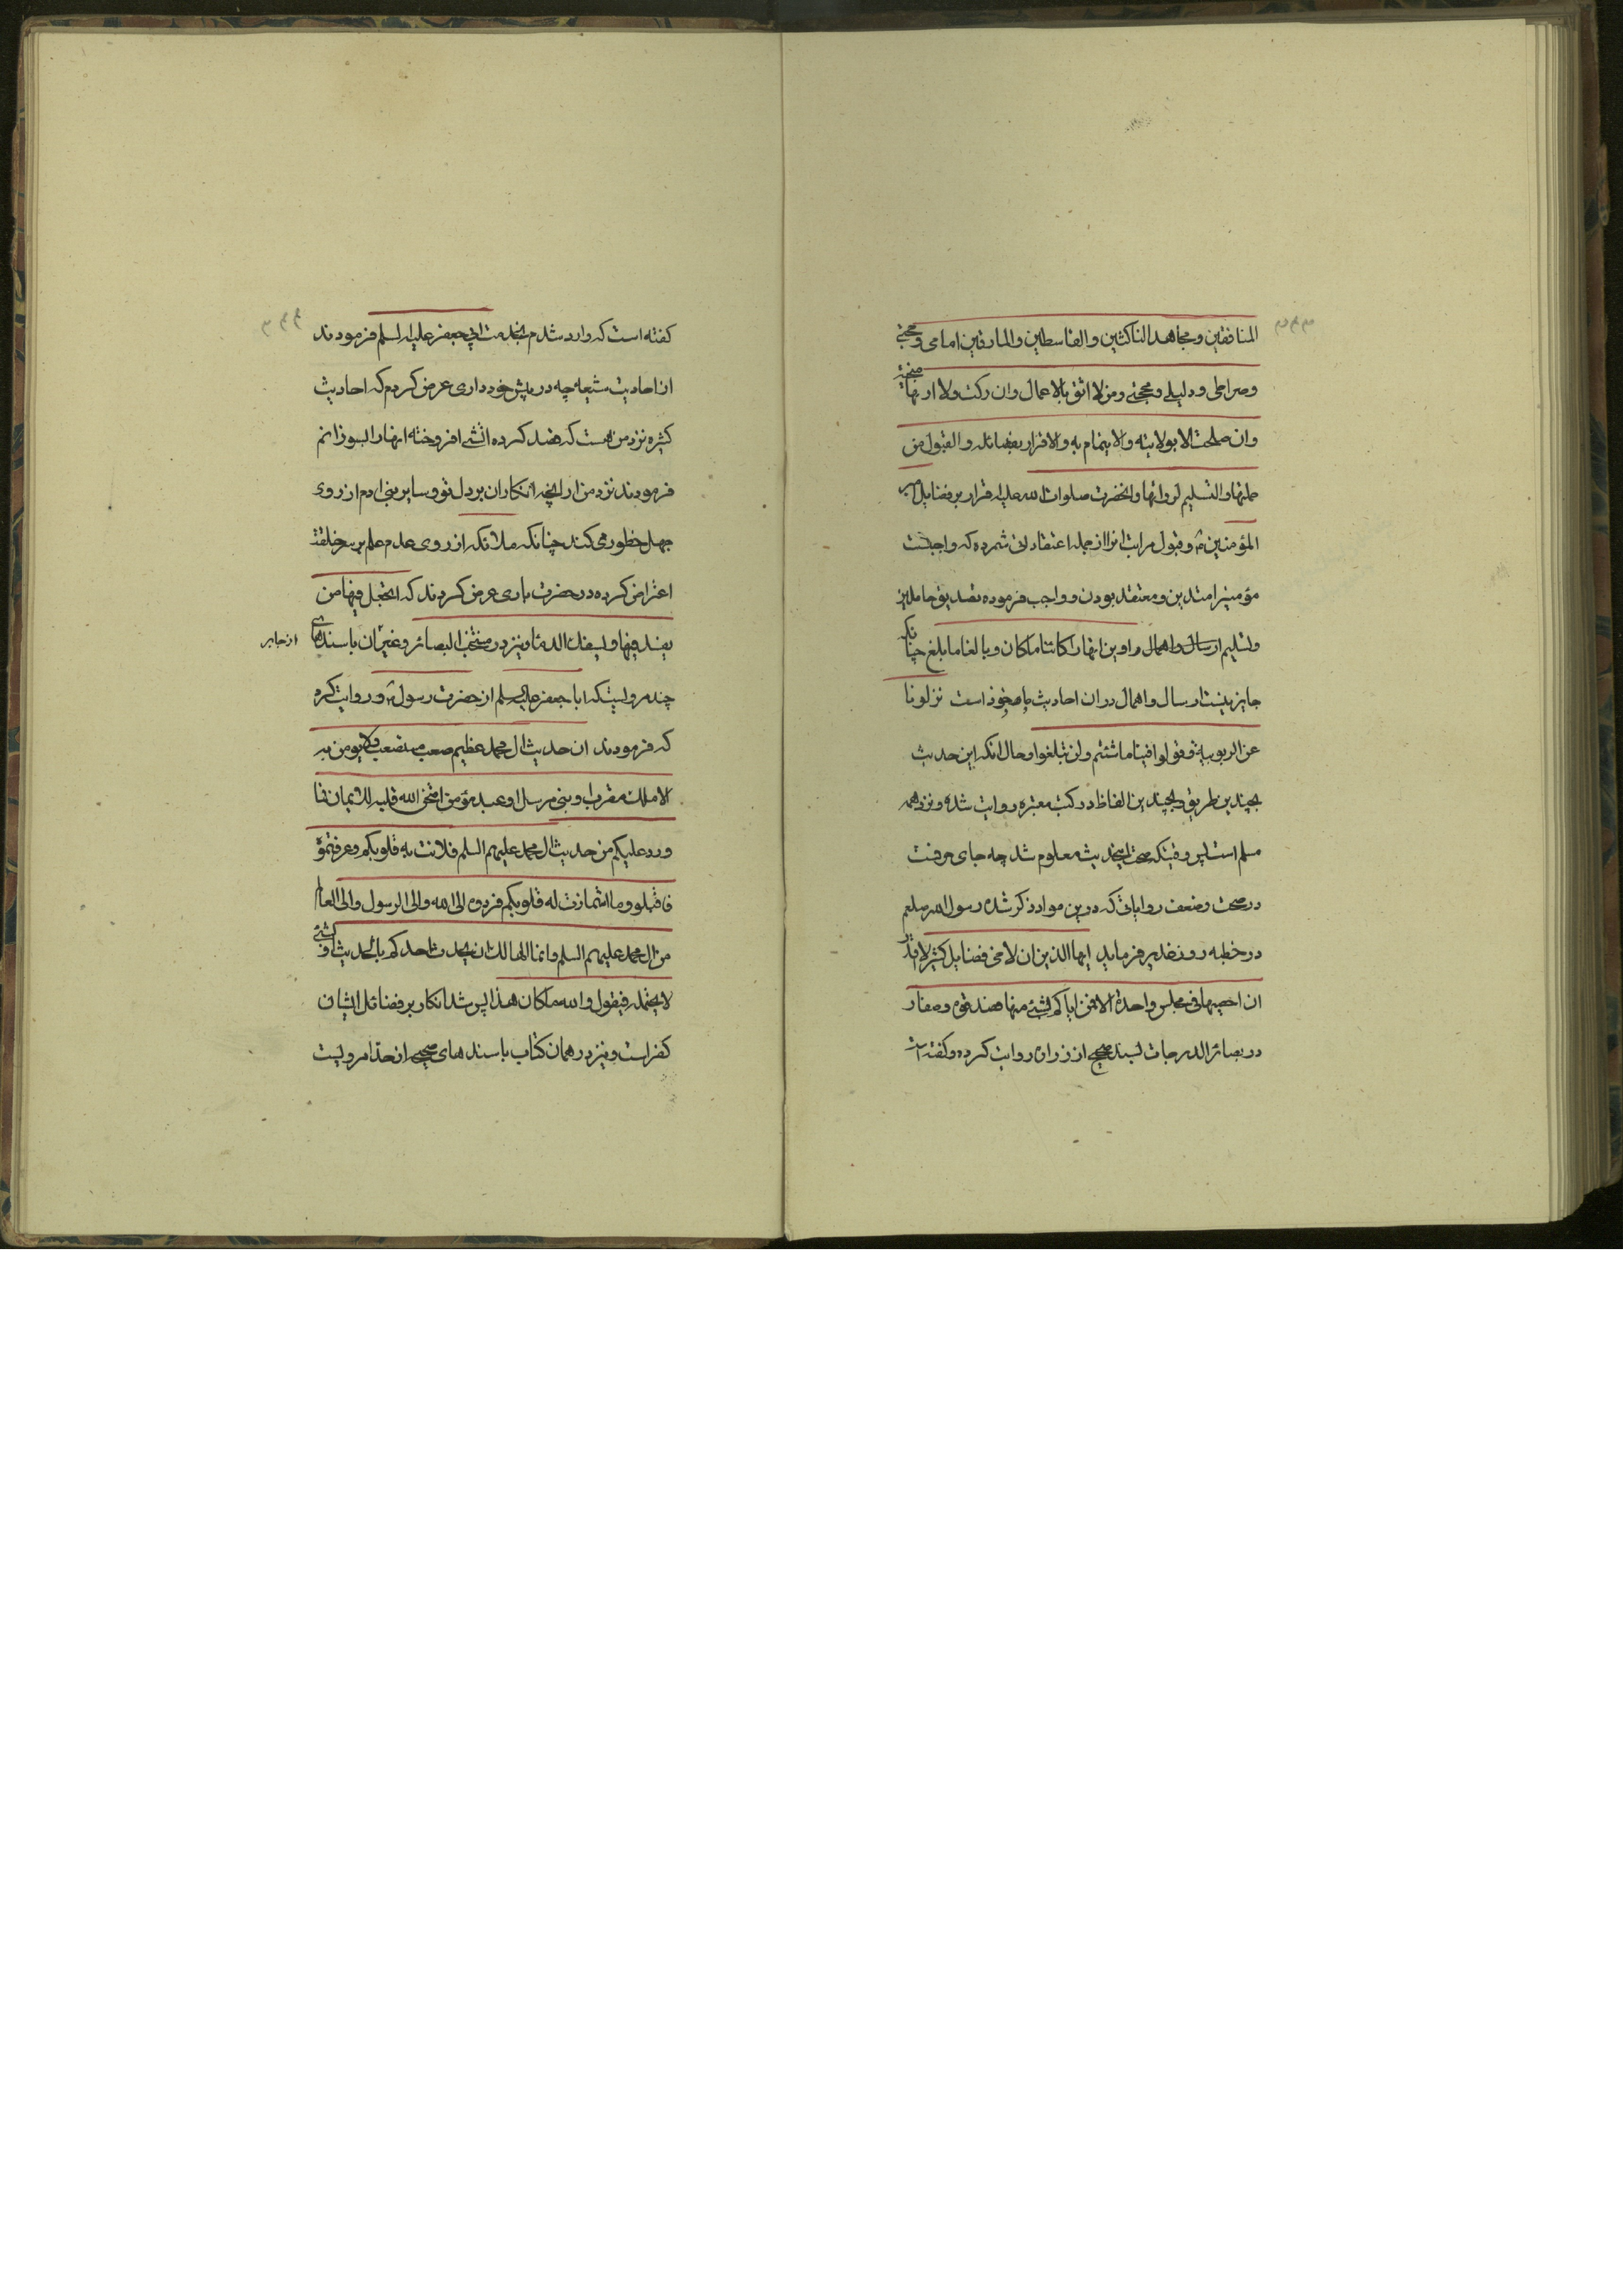 المنافقین و مجاهد الناکثین والقاسطین والمارقین امامی و حجتی
وصراطی و دلیلی و محجتی ومن لا اثق بالاعمال وان زکت ولا اریها منجیة
وان صلحت الا بولایته والایتمام به والاقرار بفضائله والقبول من
حملتها والتسلیم لرواتها وانحضرت صلوات الله علیه اقرار بر فضایل امیر
المؤمنین و قبول مراتب انرا از جمله اعتقاداتی شمرده که واجبست
مؤمنین را متدین و معتقد بودن و واجب فرموده تصدیق حاملین
وتسلیم ارسال و اهمال راوین انها را کائنا ما کان و بالغا ما بلغ چنانکه
جایز نیست ارسال و اهمال در ان احادیث ماخوذ است نزلونا
عن الربوبیة و قولوا فینا ما شئتم ولن تبلغوا و حال انکه این حدیث
بچندین طریق و بچندین الفاظ در کتب معتبره روایت شده و نزد همه
مسلم است پس وقتیکه صحت اینحدیث معلوم شد چه جای حرفست
در صحت وضعف روایاتی که درین مواد ذکر شده رسول الله صلعم
در خطبه روز غدیر فرماید ایها الذین ان لاخی فضایل کثیر لا اقدر
ان احصیها فی مجلس واحدة الا فمن اتاکم بشئ منها فصدقوه و صفار
در بصائر الدرجات بسند صحیح از زراره روایت کرده و گفته است
کفته است که وارد شدم بخدمت ابی جعفر علیه السلم فرمودند
از احادیث شیعه چه در پیش خود داری عرض کردم که احادیث
کثیره نزد من هست که قصد کرده اتشی افروخته انها را بسوزانم
فرمودند نزد من ار انچه انکار ان بر دل تو و سایر بنی ادم از روی
جهل خطور می کند چنانکه ملائکه از روی عدم علم بر سر خلقت
اعتراض کرده در حضرت باری عرض کردند که اتجعل فیها من
یفسد فیها ویسفک الدماء ونیز در منتخب البصائر و غیر ان باسندهای
از جابر
چند مرویست که ابا جعفر علیه السلم از حضرت رسول روایت کرد
که فرمودند ان حدیث ال محمد عظیم صعب مستصعب ولا یومن به
الا ملک مقرب او نبی مرسل او عبد مؤمن امتحن الله قلبه للایمان فما
ورد علیکم من حدیث ال محمد علیهم السلم فلانت به قلوبکم وعرفتموه
فاقبلوه وما اشمازت له قلوبکم فردوه الی الله والی الرسول والی العالم
من ال محمد علیهم السلم وانما الهالک ان یحدث احدکم بالحدیث او بشئ
لا یحتمله فیقول والله ما کان هذا پس شد انکار بر فضائل ایشان
کفر است و نیز در همان کتاب باسندهای صحیح از حذا مرویست